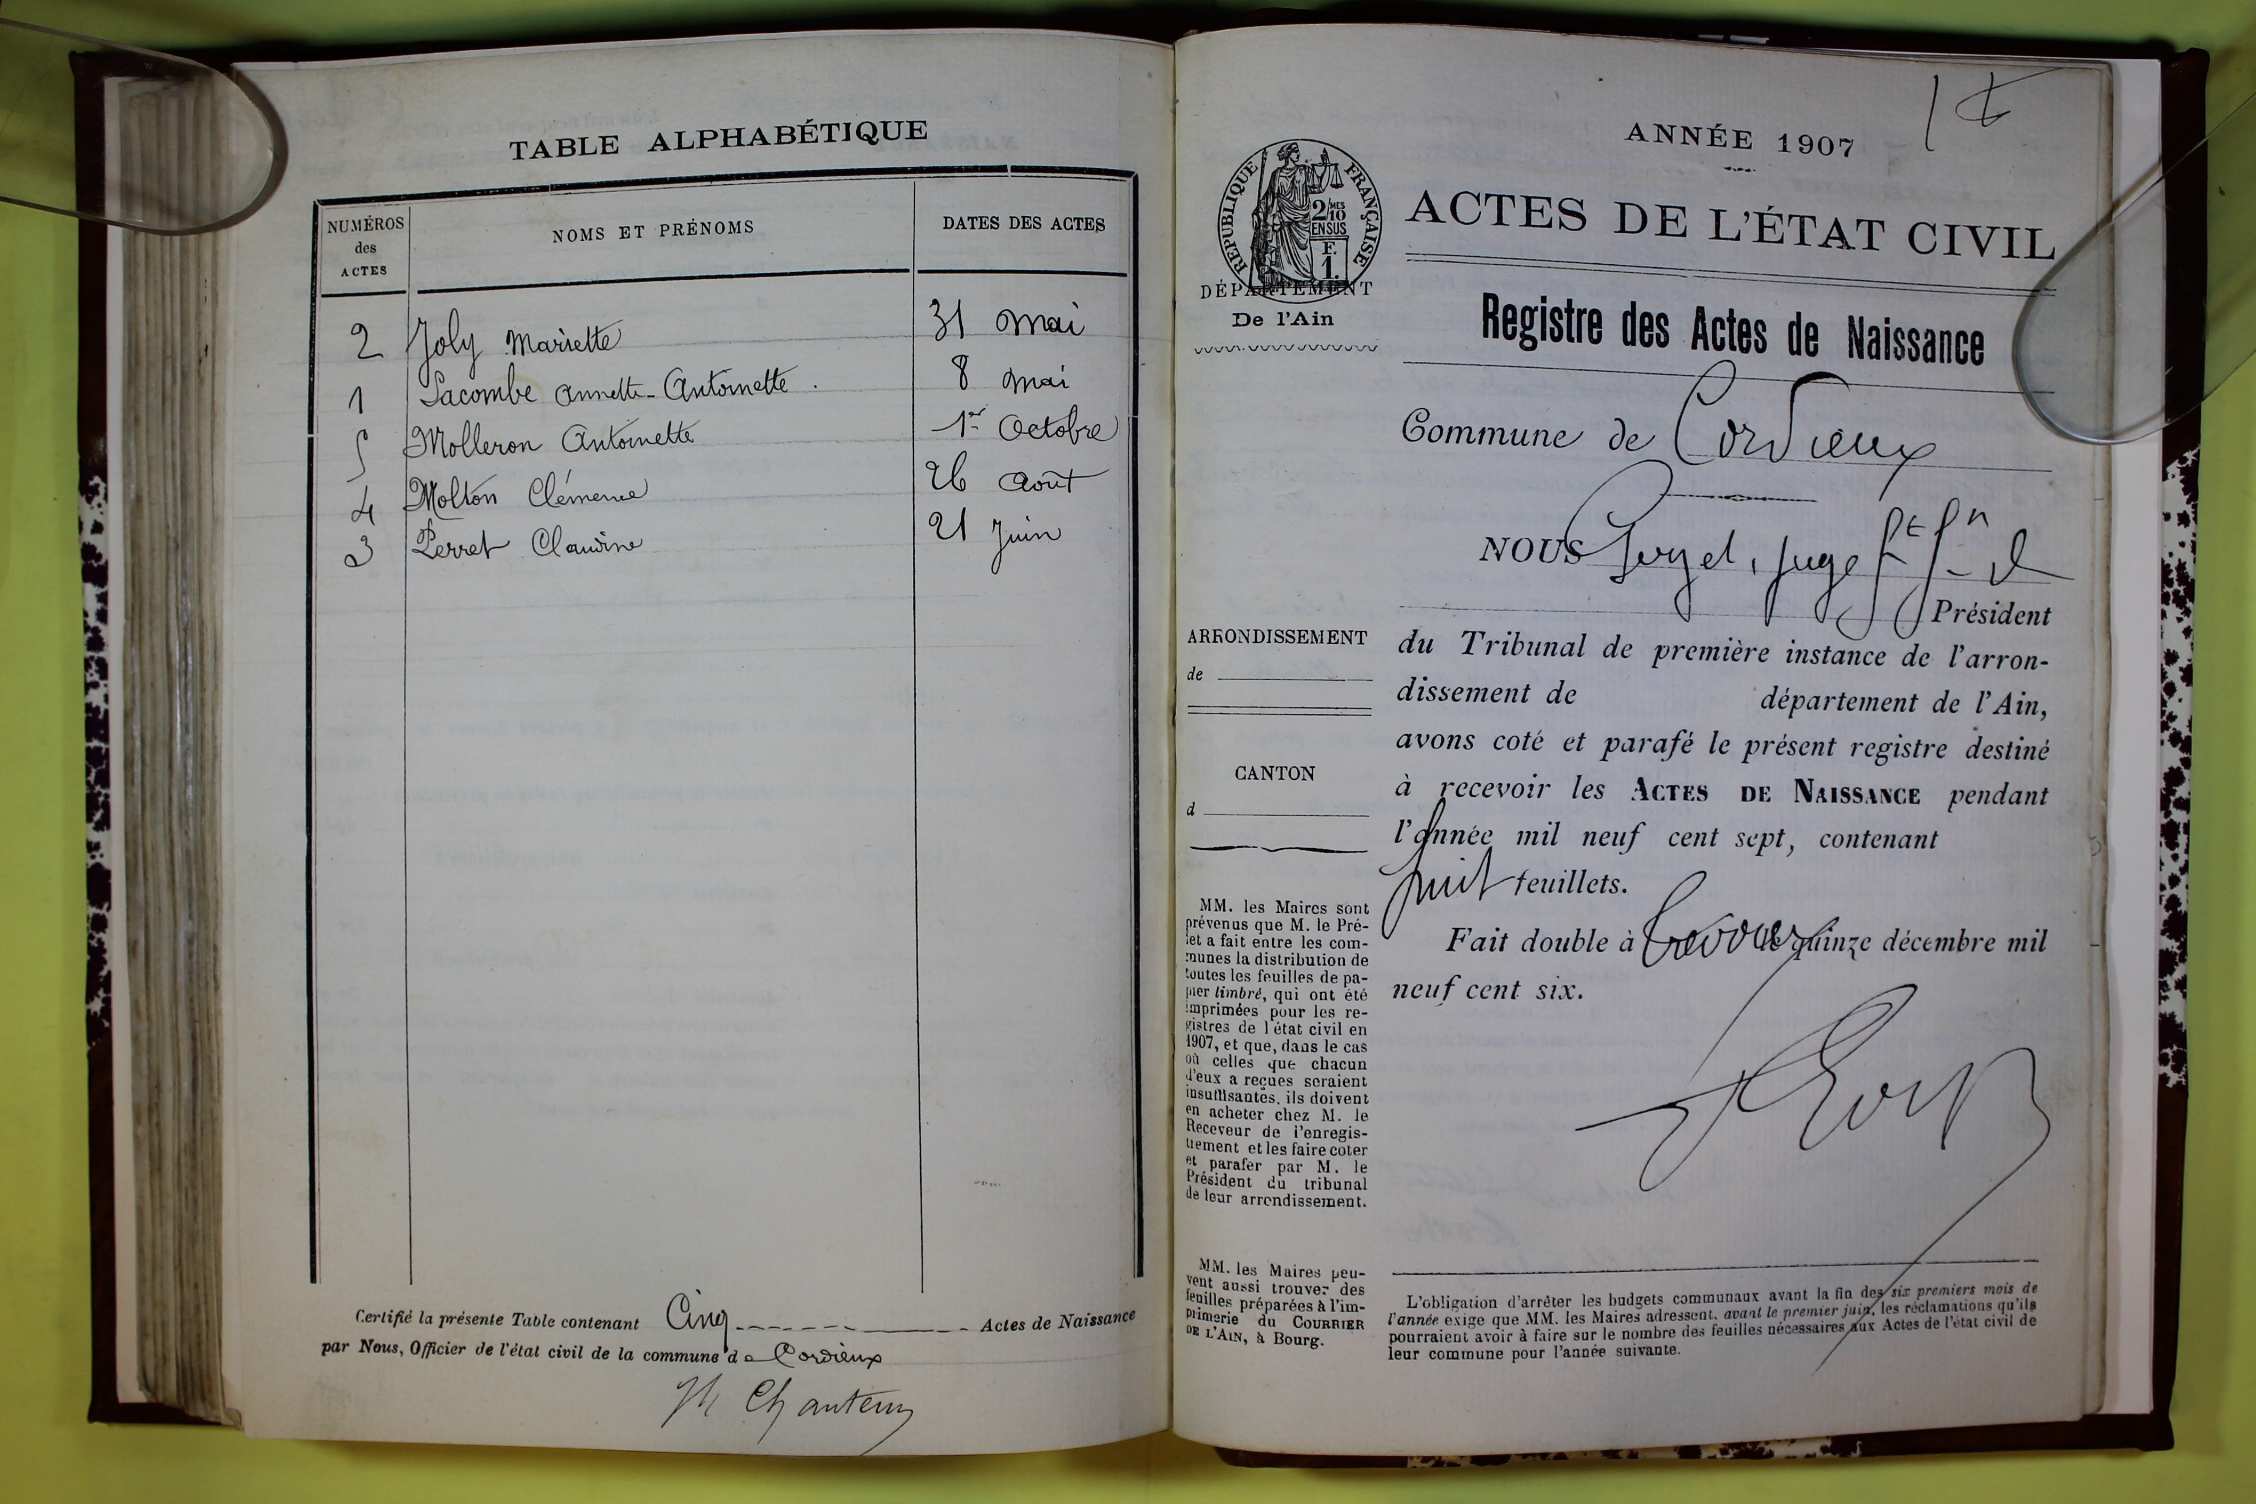 TABLE ALPHABÉTIQUE
NUMÉROS
des
ACTES
NOMS ET PRÉNOMS
DATES DES ACTES
2 Joly Mariette 31 Mai
1 Lacombe Annette-Antoinette. 8 Mai
5 Molleron Antoinette 1er Octobre
4 Molton Clémence 26 Août
3 Perret Claudine 21 Juin
Certifié la présente Table contenant Cinq Actes de Naissance
par Nous, Officier de l'état civil de la commune de Cordieux
1
ANNÉE 1907
RÉPUBLIQUE FRANÇAISE
2/10 MES
EN SUS
F.
1.
ACTES DE L'ÉTAT CIVIL
DÉPARTEMENT
De l'Ain
Registre des Actes de Naissance
Commune de Cordieux
NOUS juge
Président
du Tribunal de première instance de l'arron-
dissement de département de l'Ain,
avons coté et parafé le présent registre destiné
à recevoir les ACTES DE NAISSANCE pendant
l'année mil neuf cent sept, contenant
huit feuillets.
Fait double à Trévoux le quinze décembre mil
neuf cent six.
ARRONDISSEMENT
de
CANTON
d
MM. les Maires sont
prévenus que M. le Pré-
fet a fait entre les com-
munes la distribution de
toutes les feuilles de pa-
pier timbré, qui ont été
imprimées pour les re-
gistres de l'état civil en
1907, et que, dans le cas
où celles que chacun
d'eux a reçues seraient
insuffisantes, ils doivent
en acheter chez M. le
Receveur de l'enregis-
trement et les faire coter
et parafer par M. le
Président du tribunal
de leur arrondissement.
MM. les Maires peu-
vent aussi trouver des
feuilles préparées à l'im-
primerie du COURRIER
DE L'AIN, à Bourg.
L'obligation d'arrêter les budgets communaux avant la fin des six premiers mois de
l'année exige que MM. les Maires adressent, avant le premier juin, les réclamations qu'ils
pourraient avoir à faire sur le nombre des feuilles nécessaires aux Actes de l'état civil de
leur commune pour l'année suivante.